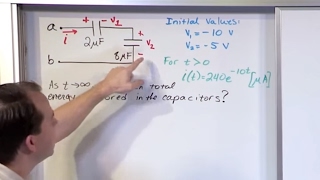 a
+ - V₁ -
+
i
2μF
V₂
-
b
8μF
Initial Values:
V₁ = -10 V
V₂ = -5 V
For t > 0
i(t) = 240e^-10t [μA]
As t → ∞ total
energy ored in the capacitors?